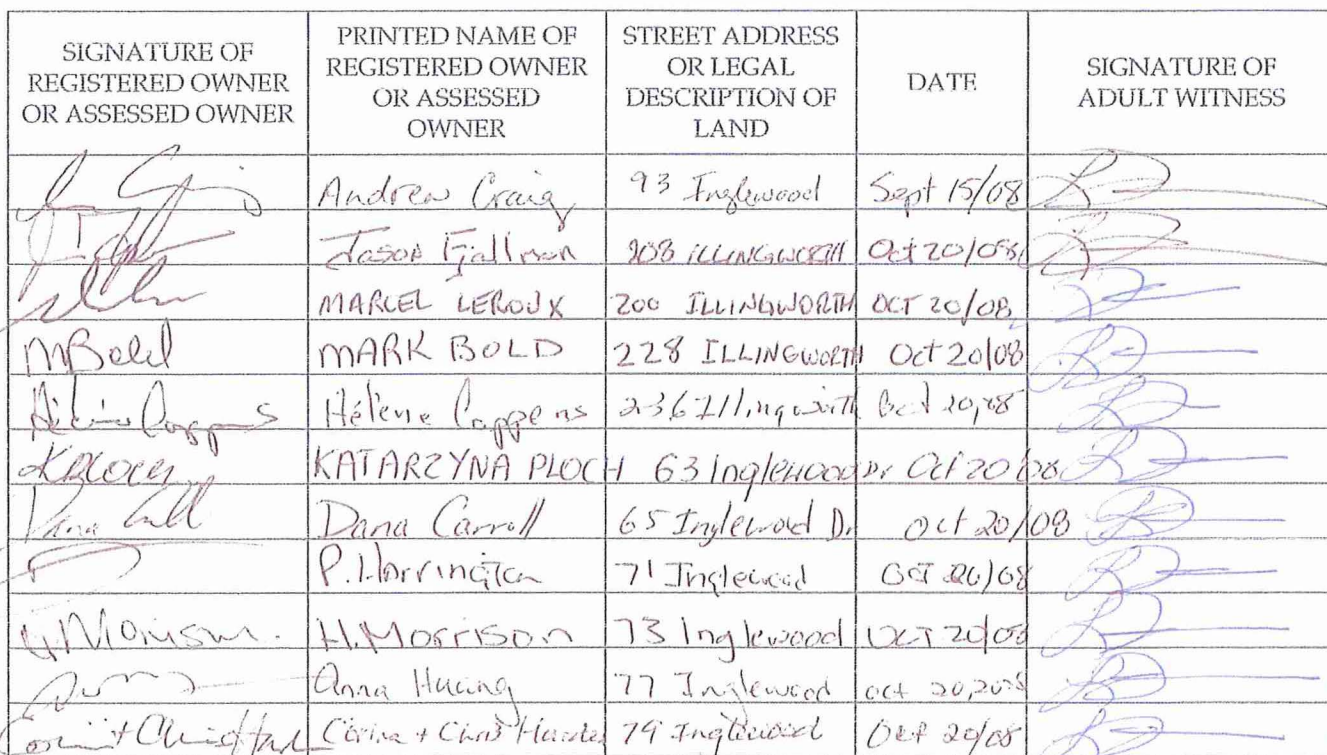 SIGNATURE OF REGISTERED OWNER OR ASSESSED OWNER
PRINTED NAME OF REGISTERED OWNER OR ASSESSED OWNER
STREET ADDRESS OR LEGAL DESCRIPTION OF LAND
DATE
SIGNATURE OF ADULT WITNESS
Andrew Craig 93 Inglewood Sept 15/08
Jason Fjallman 208 ILLINGWORTH Oct 20/08
MARCEL LEROUX 200 ILLINGWORTH OCT 20/08
MBold MARK BOLD 228 ILLINGWORTH Oct 20/08
Hélène Coppens Hélène Coppens 236 Illingworth Oct 20,08
KPloch KATARZYNA PLOCH 63 Inglewood Dr Oct 20/08
Dana Carroll 65 Inglewood Dr Oct 20/08
P. Harrington 71 Inglewood OCT 20/08
H. Morrison 73 Inglewood OCT 20/08
Anna Huang 77 Inglewood oct 20,2008
Corina + Chris 79 Inglewood Oct 20/08